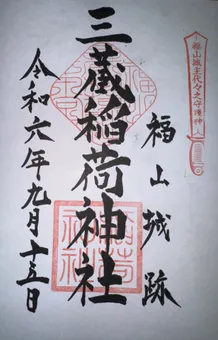 福山城主代々之守護神
福山城跡
三蔵稲荷神社
令和六年九月十三日